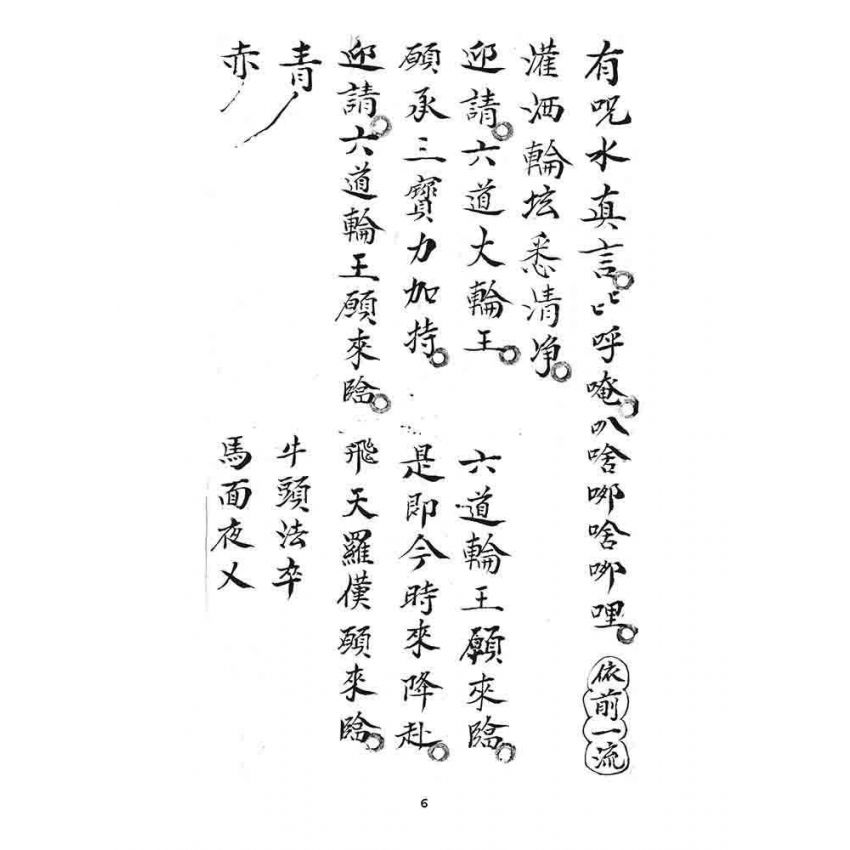 有呪水真言匕匕呼唵叭啥哪啥哪哩 依前一流
灌洒輪坛悉清净
迎請六道大輪王 六道輪王願來臨
願承三寶力加持 是即今時來降赴
迎請六道輪王願來臨 飛天羅傼願來臨
青 牛頭法卒
赤 馬面夜乂
6